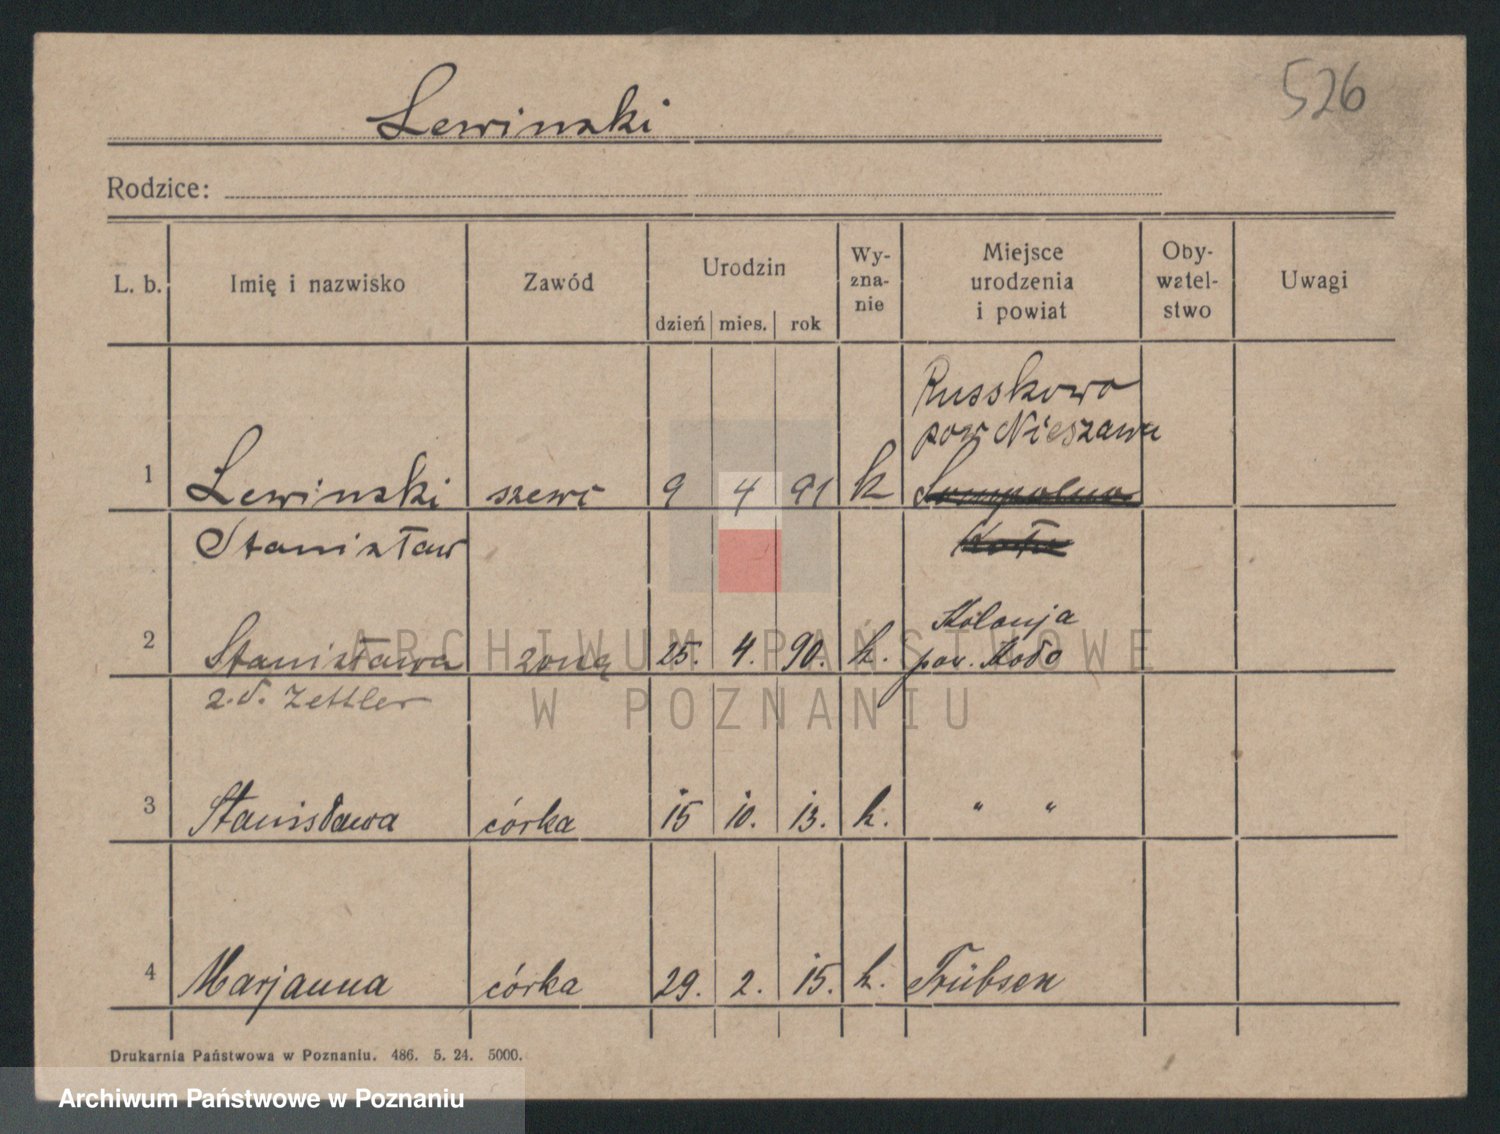 526
Lewinski
Rodzice:
L. b. Imię i nazwisko Zawód Urodzin dzień mies. rok Wy-zna-nie Miejsce urodzenia i powiat Oby-watel-stwo Uwagi
Russkowo
pow Nieszawa
1 Lewinski szewc 9 4 91 k Sompolno
Stanisław Koło
Kolonja
2 Stanisława żona 25. 4. 90. k. pow. Koło
z. d. Zettler
3 Stanisława córka 15 10. 13. k. " "
4 Marjanna córka 29. 2. 15. k. Trübsen
Drukarnia Państwowa w Poznaniu. 486. 5. 24. 5000.
ARCHIWUM PAŃSTWOWE
W POZNANIU
Archiwum Państwowe w Poznaniu